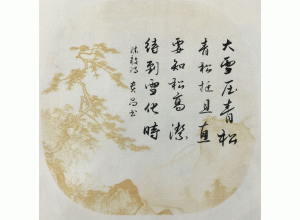 大雪压青松
青松挺且直
要知松高洁
待到雪化时
陈毅诗